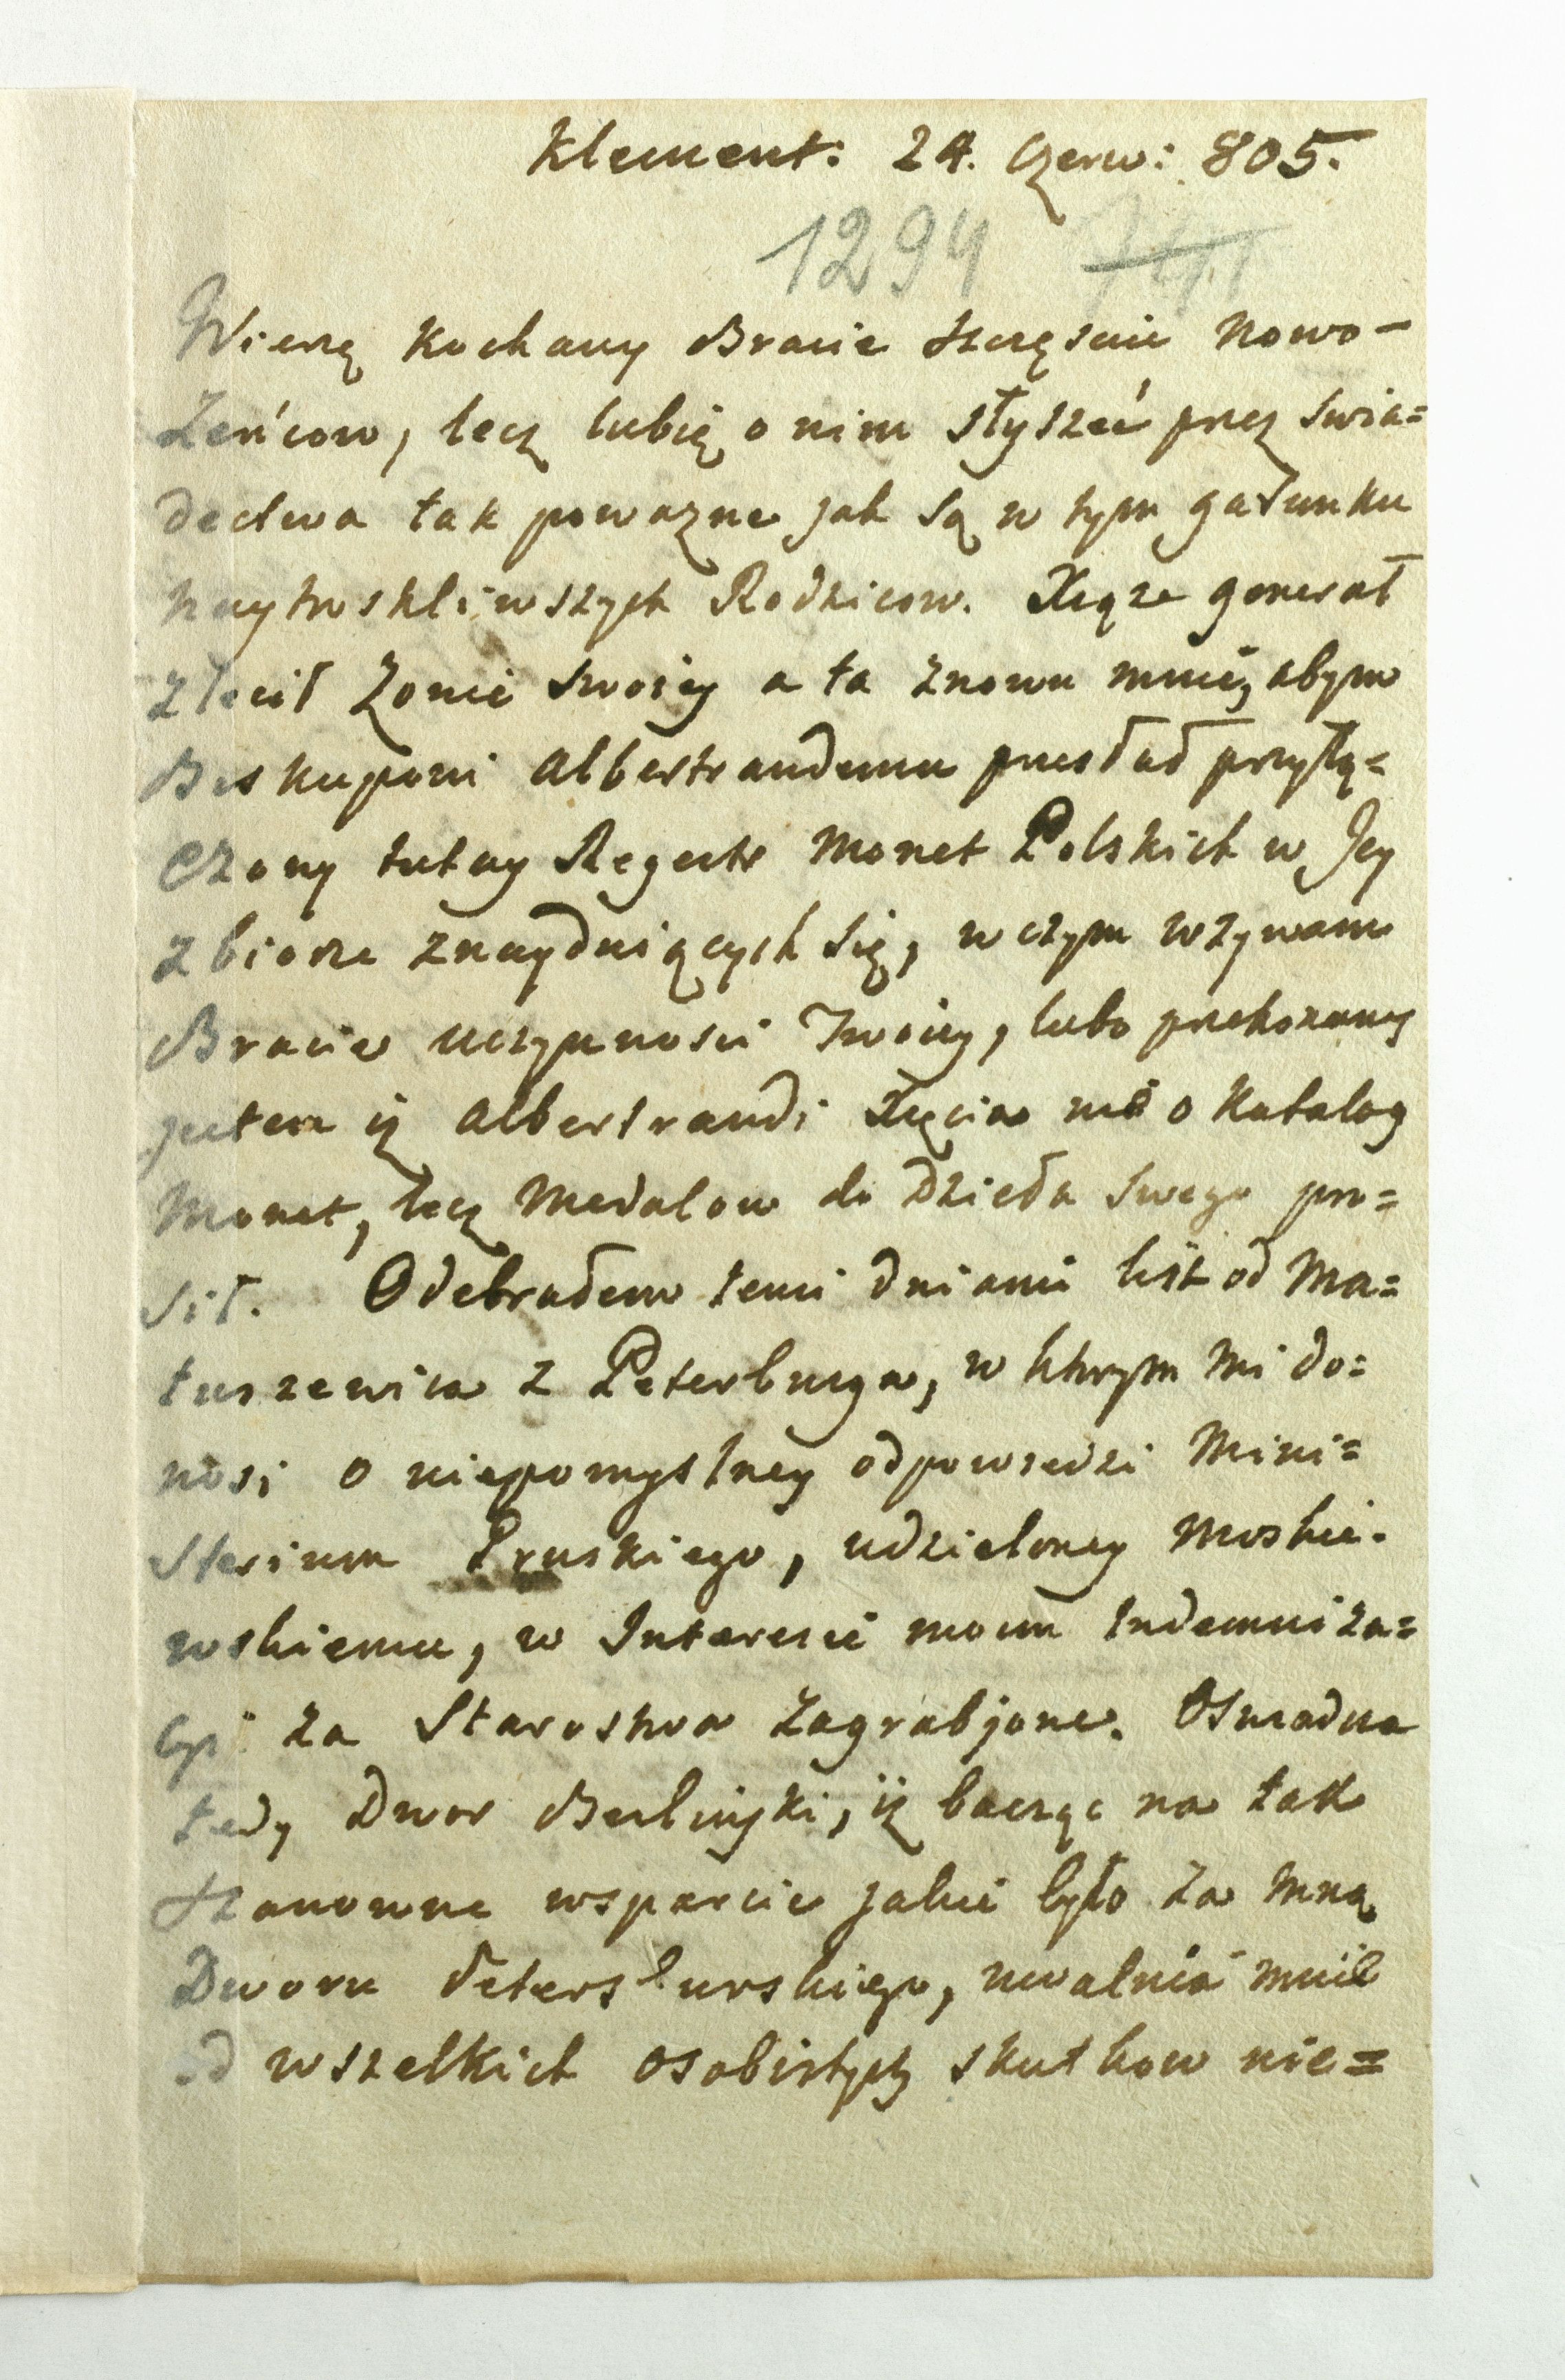 Klement: 24. Czerw: 805.
1294 741
Wierzę Kochany Bracie szczęscie Nowo-
żeńcow, lecz lubię o nim słyszeć przez swia=
dectwa tak powazne jak są w tym gatunku
naytroskliwszych Rodzicow. Xiąze generał
zlecił Zonie swoiey a ta znowu mnie, abym
Biskupowi Albertrandemu przesłał przyłą=
czony tutay Regestr Monet Polskich w Jey
zbiorze znayduiących się, w czym wzywam
Bracie uczynnosci Twoiey, lubo przekonany
jestem iż Albertrandi Xięcia nie o Katalog
Monet, lecz Medalow do dzieła swego pro=
sił. Odebrałem temi dniami list od Ma=
tuszewica z Peterburga, w ktorym mi do=
nosi o niepomyslney odpowiedzi Mini=
sterium Pruskiego, udzieloney Moskie-
wskiemu, w Interesie moim Indemniza=
cyi za Starostwa zagrabione. Oswiadcza
tedy Dwor Berlinski, iż bacząc na tak
szanowne wsparcie jakie było za mną
Dworu Petersburskiego, uwalnia mnie
od wszelkich osobistych skutkow nie=